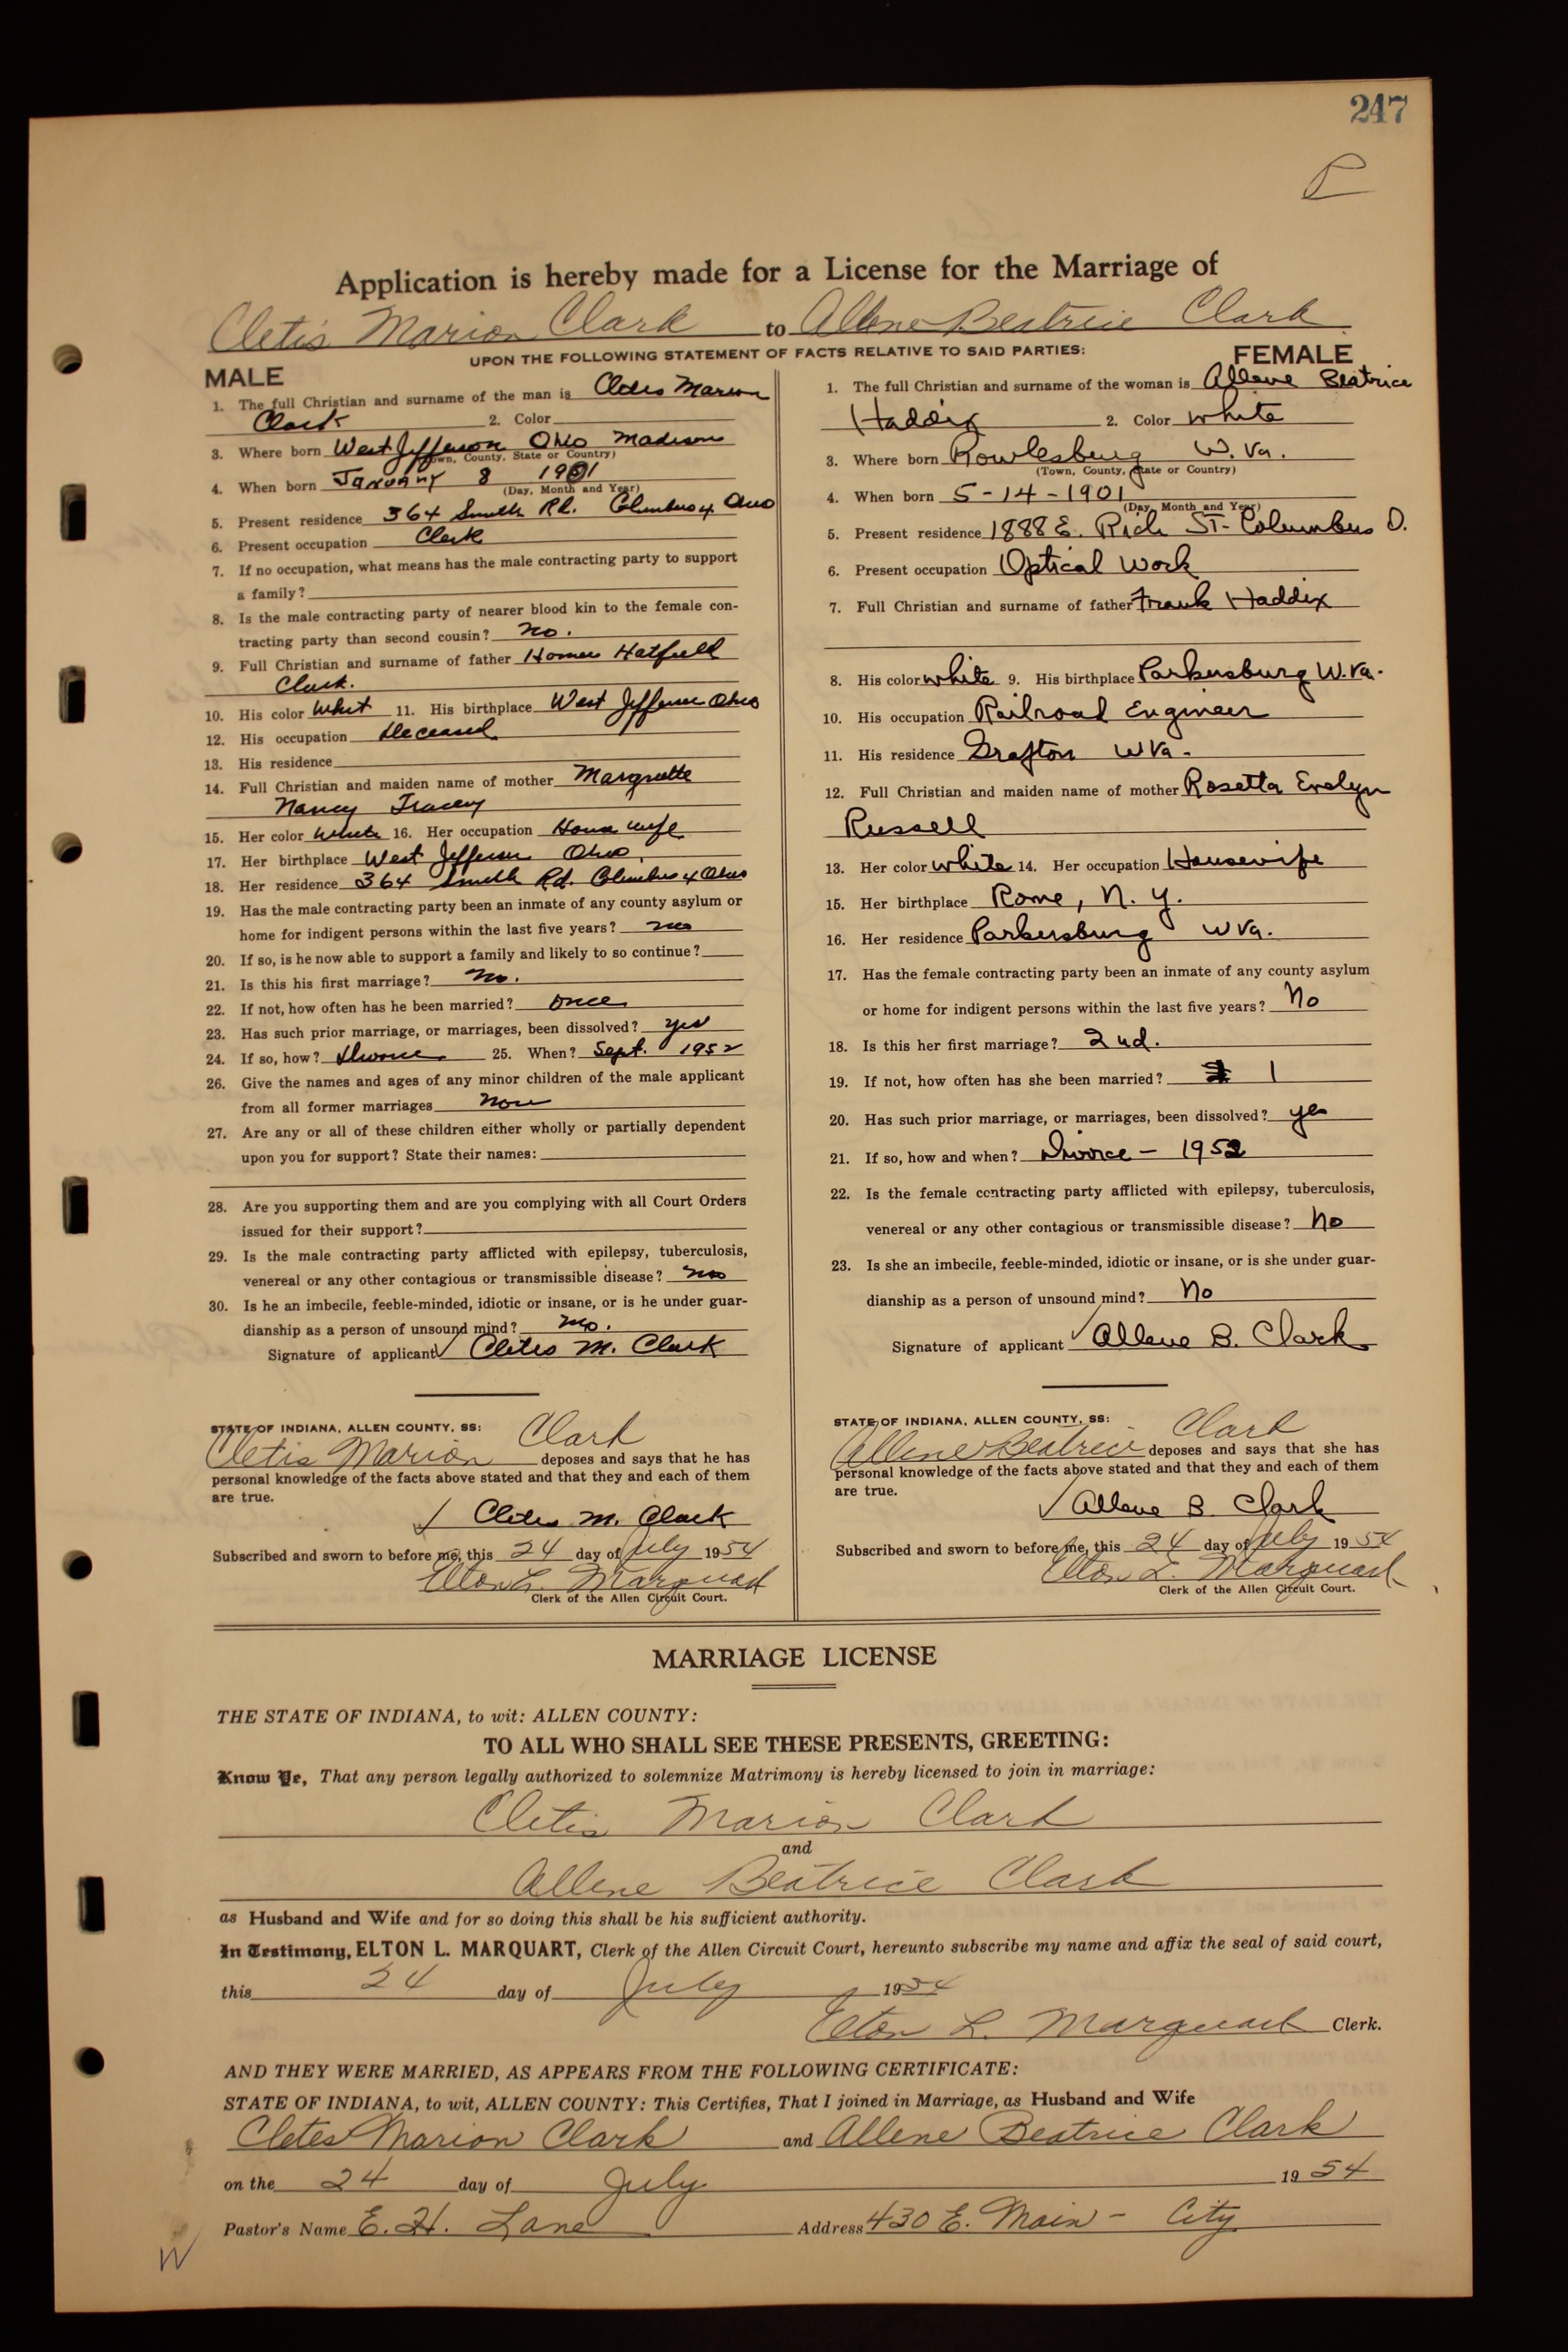 247
P
Application is hereby made for a License for the Marriage of
Cletis Marion Clark to Allene Beatrice Clark
UPON THE FOLLOWING STATEMENT OF FACTS RELATIVE TO SAID PARTIES:
MALE
1. The full Christian and surname of the man is Cletis Marion
Clark 2. Color
3. Where born West Jefferson Ohio Madison
(Town, County, State or Country)
4. When born January 8 1901
(Day, Month and Year)
5. Present residence 364 Smith Rd. Columbus 4 Ohio
6. Present occupation Clerk
7. If no occupation, what means has the male contracting party to support
a family?
8. Is the male contracting party of nearer blood kin to the female con-
tracting party than second cousin? no.
9. Full Christian and surname of father Homer Hatfield
Clark.
10. His color Whit 11. His birthplace West Jefferson Ohio
12. His occupation Deceased
13. His residence
14. Full Christian and maiden name of mother Margrette
Nancy Tracey
15. Her color White 16. Her occupation House wife
17. Her birthplace West Jefferson Ohio.
18. Her residence 364 Smith Rd. Columbus 4 Ohio
19. Has the male contracting party been an inmate of any county asylum or
home for indigent persons within the last five years? no
20. If so, is he now able to support a family and likely to so continue?
21. Is this his first marriage? no.
22. If not, how often has he been married? once
23. Has such prior marriage, or marriages, been dissolved? yes
24. If so, how? Divorce 25. When? Sept. 1952
26. Give the names and ages of any minor children of the male applicant
from all former marriages None
27. Are any or all of these children either wholly or partially dependent
upon you for support? State their names:
28. Are you supporting them and are you complying with all Court Orders
issued for their support?
29. Is the male contracting party afflicted with epilepsy, tuberculosis,
venereal or any other contagious or transmissible disease? no
30. Is he an imbecile, feeble-minded, idiotic or insane, or is he under guar-
dianship as a person of unsound mind? no.
Signature of applicant Cletis M. Clark
STATE OF INDIANA, ALLEN COUNTY, SS: Clark
Cletis Marion deposes and says that he has
personal knowledge of the facts above stated and that they and each of them
are true.
Cletis M. Clark
Subscribed and sworn to before me, this 24 day of July 1954
Elton L. Marquart
Clerk of the Allen Circuit Court.
FEMALE
1. The full Christian and surname of the woman is Allene Beatrice
Haddix 2. Color white
3. Where born Rowlesburg W. Va.
(Town, County, State or Country)
4. When born 5-14-1901
(Day, Month and Year)
5. Present residence 1888 E. Rich St- Columbus O.
6. Present occupation Optical Work
7. Full Christian and surname of father Frank Haddix
8. His color white 9. His birthplace Parkersburg W.Va.
10. His occupation Railroad Engineer
11. His residence Grafton W Va.
12. Full Christian and maiden name of mother Rosetta Evelyn
Russell
13. Her color white 14. Her occupation Housewife
15. Her birthplace Rome, N. Y.
16. Her residence Parkersburg W Va.
17. Has the female contracting party been an inmate of any county asylum
or home for indigent persons within the last five years? No
18. Is this her first marriage? 2nd.
19. If not, how often has she been married? 1
20. Has such prior marriage, or marriages, been dissolved? yes
21. If so, how and when? Divorce - 1952
22. Is the female contracting party afflicted with epilepsy, tuberculosis,
venereal or any other contagious or transmissible disease? No
23. Is she an imbecile, feeble-minded, idiotic or insane, or is she under guar-
dianship as a person of unsound mind? No
Signature of applicant Allene B. Clark
STATE OF INDIANA, ALLEN COUNTY, SS: Clark
Allene Beatrice deposes and says that she has
personal knowledge of the facts above stated and that they and each of them
are true.
Allene B. Clark
Subscribed and sworn to before me, this 24 day of July 1954
Elton L. Marquart
Clerk of the Allen Circuit Court.
MARRIAGE LICENSE
THE STATE OF INDIANA, to wit: ALLEN COUNTY:
TO ALL WHO SHALL SEE THESE PRESENTS, GREETING:
Know Ye, That any person legally authorized to solemnize Matrimony is hereby licensed to join in marriage:
Cletis Marion Clark
and
Allene Beatrice Clark
as Husband and Wife and for so doing this shall be his sufficient authority.
In Testimony, ELTON L. MARQUART, Clerk of the Allen Circuit Court, hereunto subscribe my name and affix the seal of said court,
this 24 day of July 1954
Elton L. Marquart Clerk.
AND THEY WERE MARRIED, AS APPEARS FROM THE FOLLOWING CERTIFICATE:
STATE OF INDIANA, to wit, ALLEN COUNTY: This Certifies, That I joined in Marriage, as Husband and Wife
Cletes Marion Clark and Allene Beatrice Clark
on the 24 day of July 1954
Pastor's Name E. H. Lane Address 430 E. Main - City
W